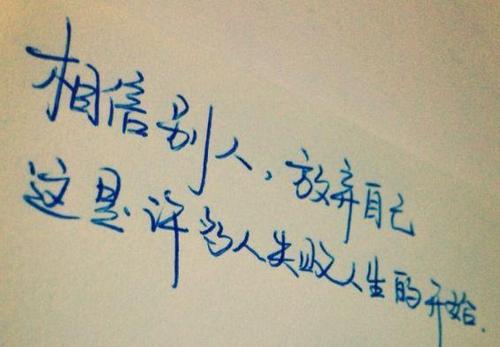 相信别人，放弃自己
这是许多人失败人生的开始.